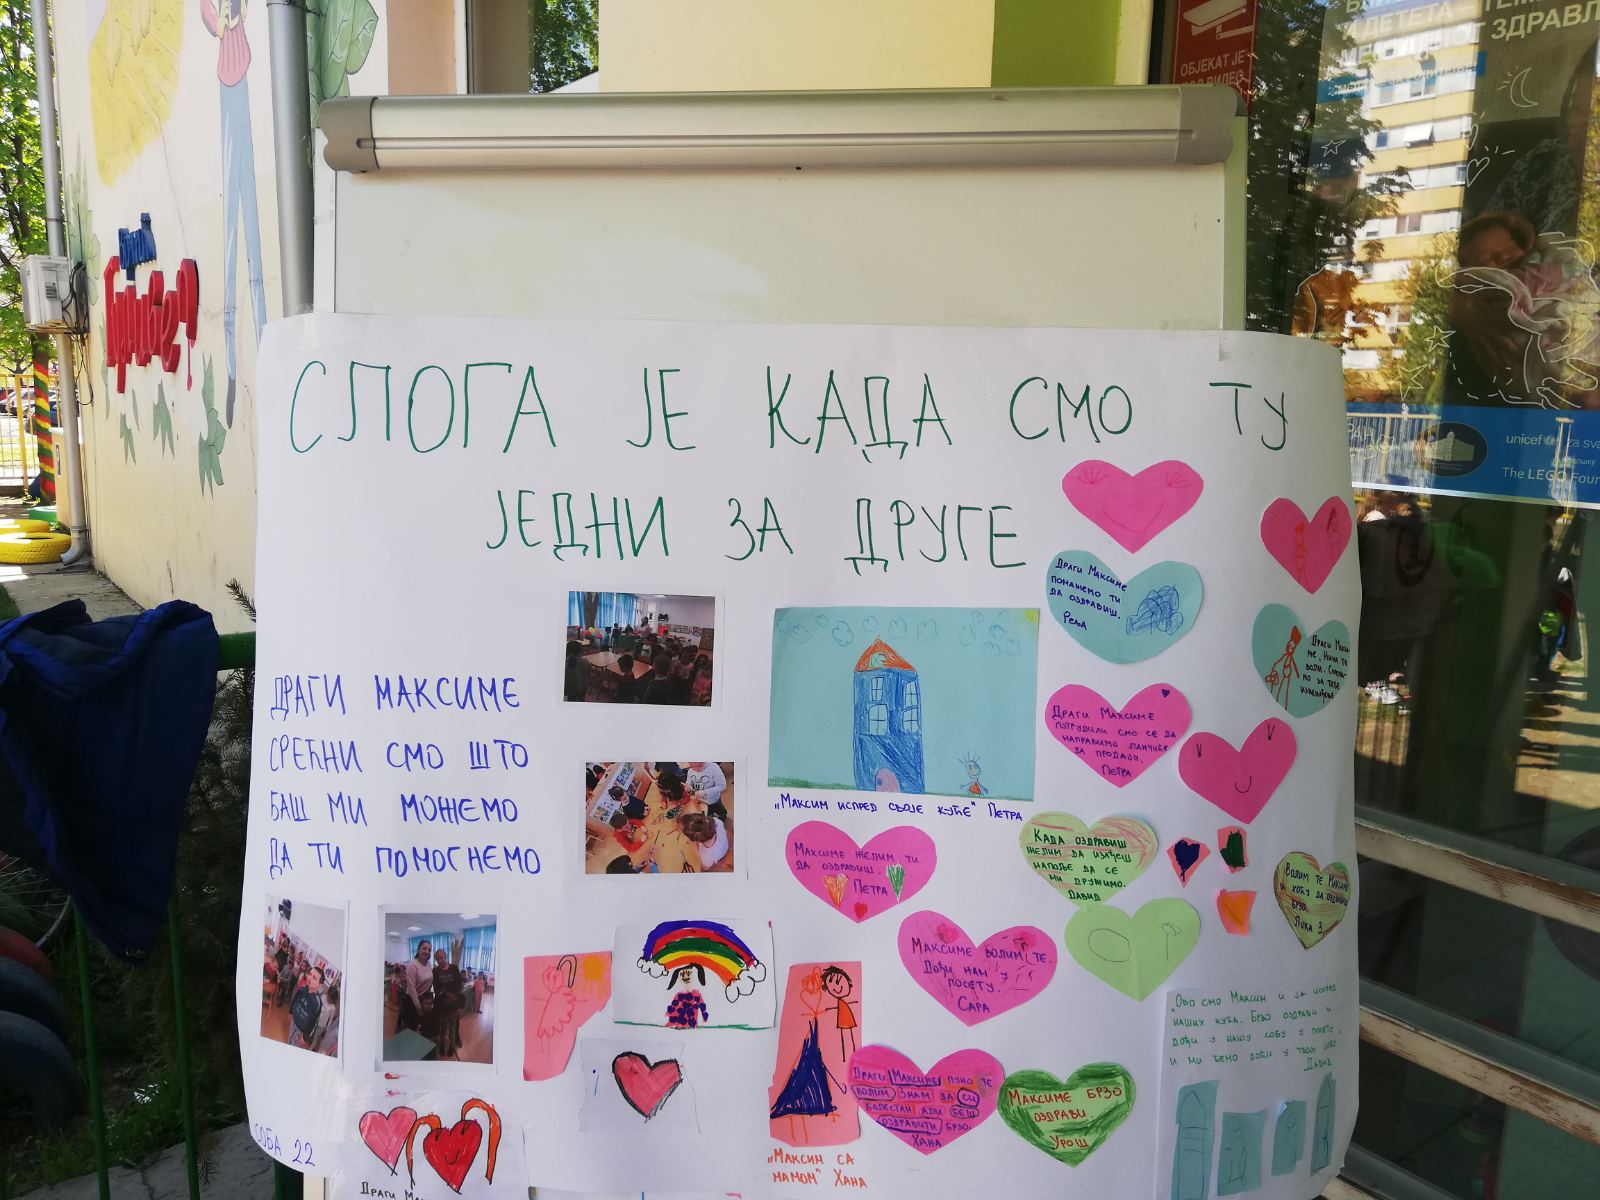 ОБЈЕКАТ ЈЕ
unicef
za sva
The LEGO Foun
СЛОГА ЈЕ КАДА СМО ТУ
ЈЕДНИ ЗА ДРУГЕ
ДРАГИ МАКСИМЕ
СРЕЋНИ СМО ШТО
БАШ МИ МОЖЕМО
ДА ТИ ПОМОГНЕМО
ДРАГИ МАКСИМЕ
ПОМАЖЕМО ТИ
ДА ОЗДРАВИШ.
РЕЉА
ДРАГИ МАКСИ-
МЕ, НИНА ТЕ
ВОЛИ.
ДРАГИ МАКСИМЕ
ПОТРУДИЛИ СМО СЕ ДА
НАПРАВИМО ЛАНЧИЋЕ
ЗА ПРОДАЈУ.
ПЕТРА
„МАКСИМ ИСПРЕД СВОЈЕ КУЋЕ" ПЕТРА
МАКСИМЕ ЖЕЛИМ ТИ
ДА ОЗДРАВИШ.
ПЕТРА
КАДА ОЗДРАВИШ
ЖЕЛИМ ДА ИЗАЂЕШ
НАПОЉЕ ДА СЕ
МИ ДРУЖИМО.
ДАВИД
ВОЛИМ ТЕ МАКСИМЕ
И ХОЋУ ДА ОЗДРАВИШ
БРЗО.
ЛУКА З.
МАКСИМЕ ВОЛИМ ТЕ.
ДОЂИ НАМ У
ПОСЕТУ.
САРА
ОВО СМО МАКСИМ И ЈА ИСПРЕД
НАШИХ КУЋА. БРЗО ОЗДРАВИ И
ДОЂИ У НАШУ СОБУ У ПОСЕТУ,
И МИ ЋЕМО ДОЋИ У ТВОЈУ СОБУ
ДАВИД
ДРАГИ МАКСИМЕ ПУНО ТЕ
ВОЛИМ. ЗНАМ ДА СИ
БОЛЕСТАН АЛИ ЋЕШ
ОЗДРАВИТИ БРЗО.
ХАНА
МАКСИМЕ БРЗО
ОЗДРАВИ.
УРОШ
„МАКСИМ СА
МАМОМ" ХАНА
СОБА 22
ДРАГИ